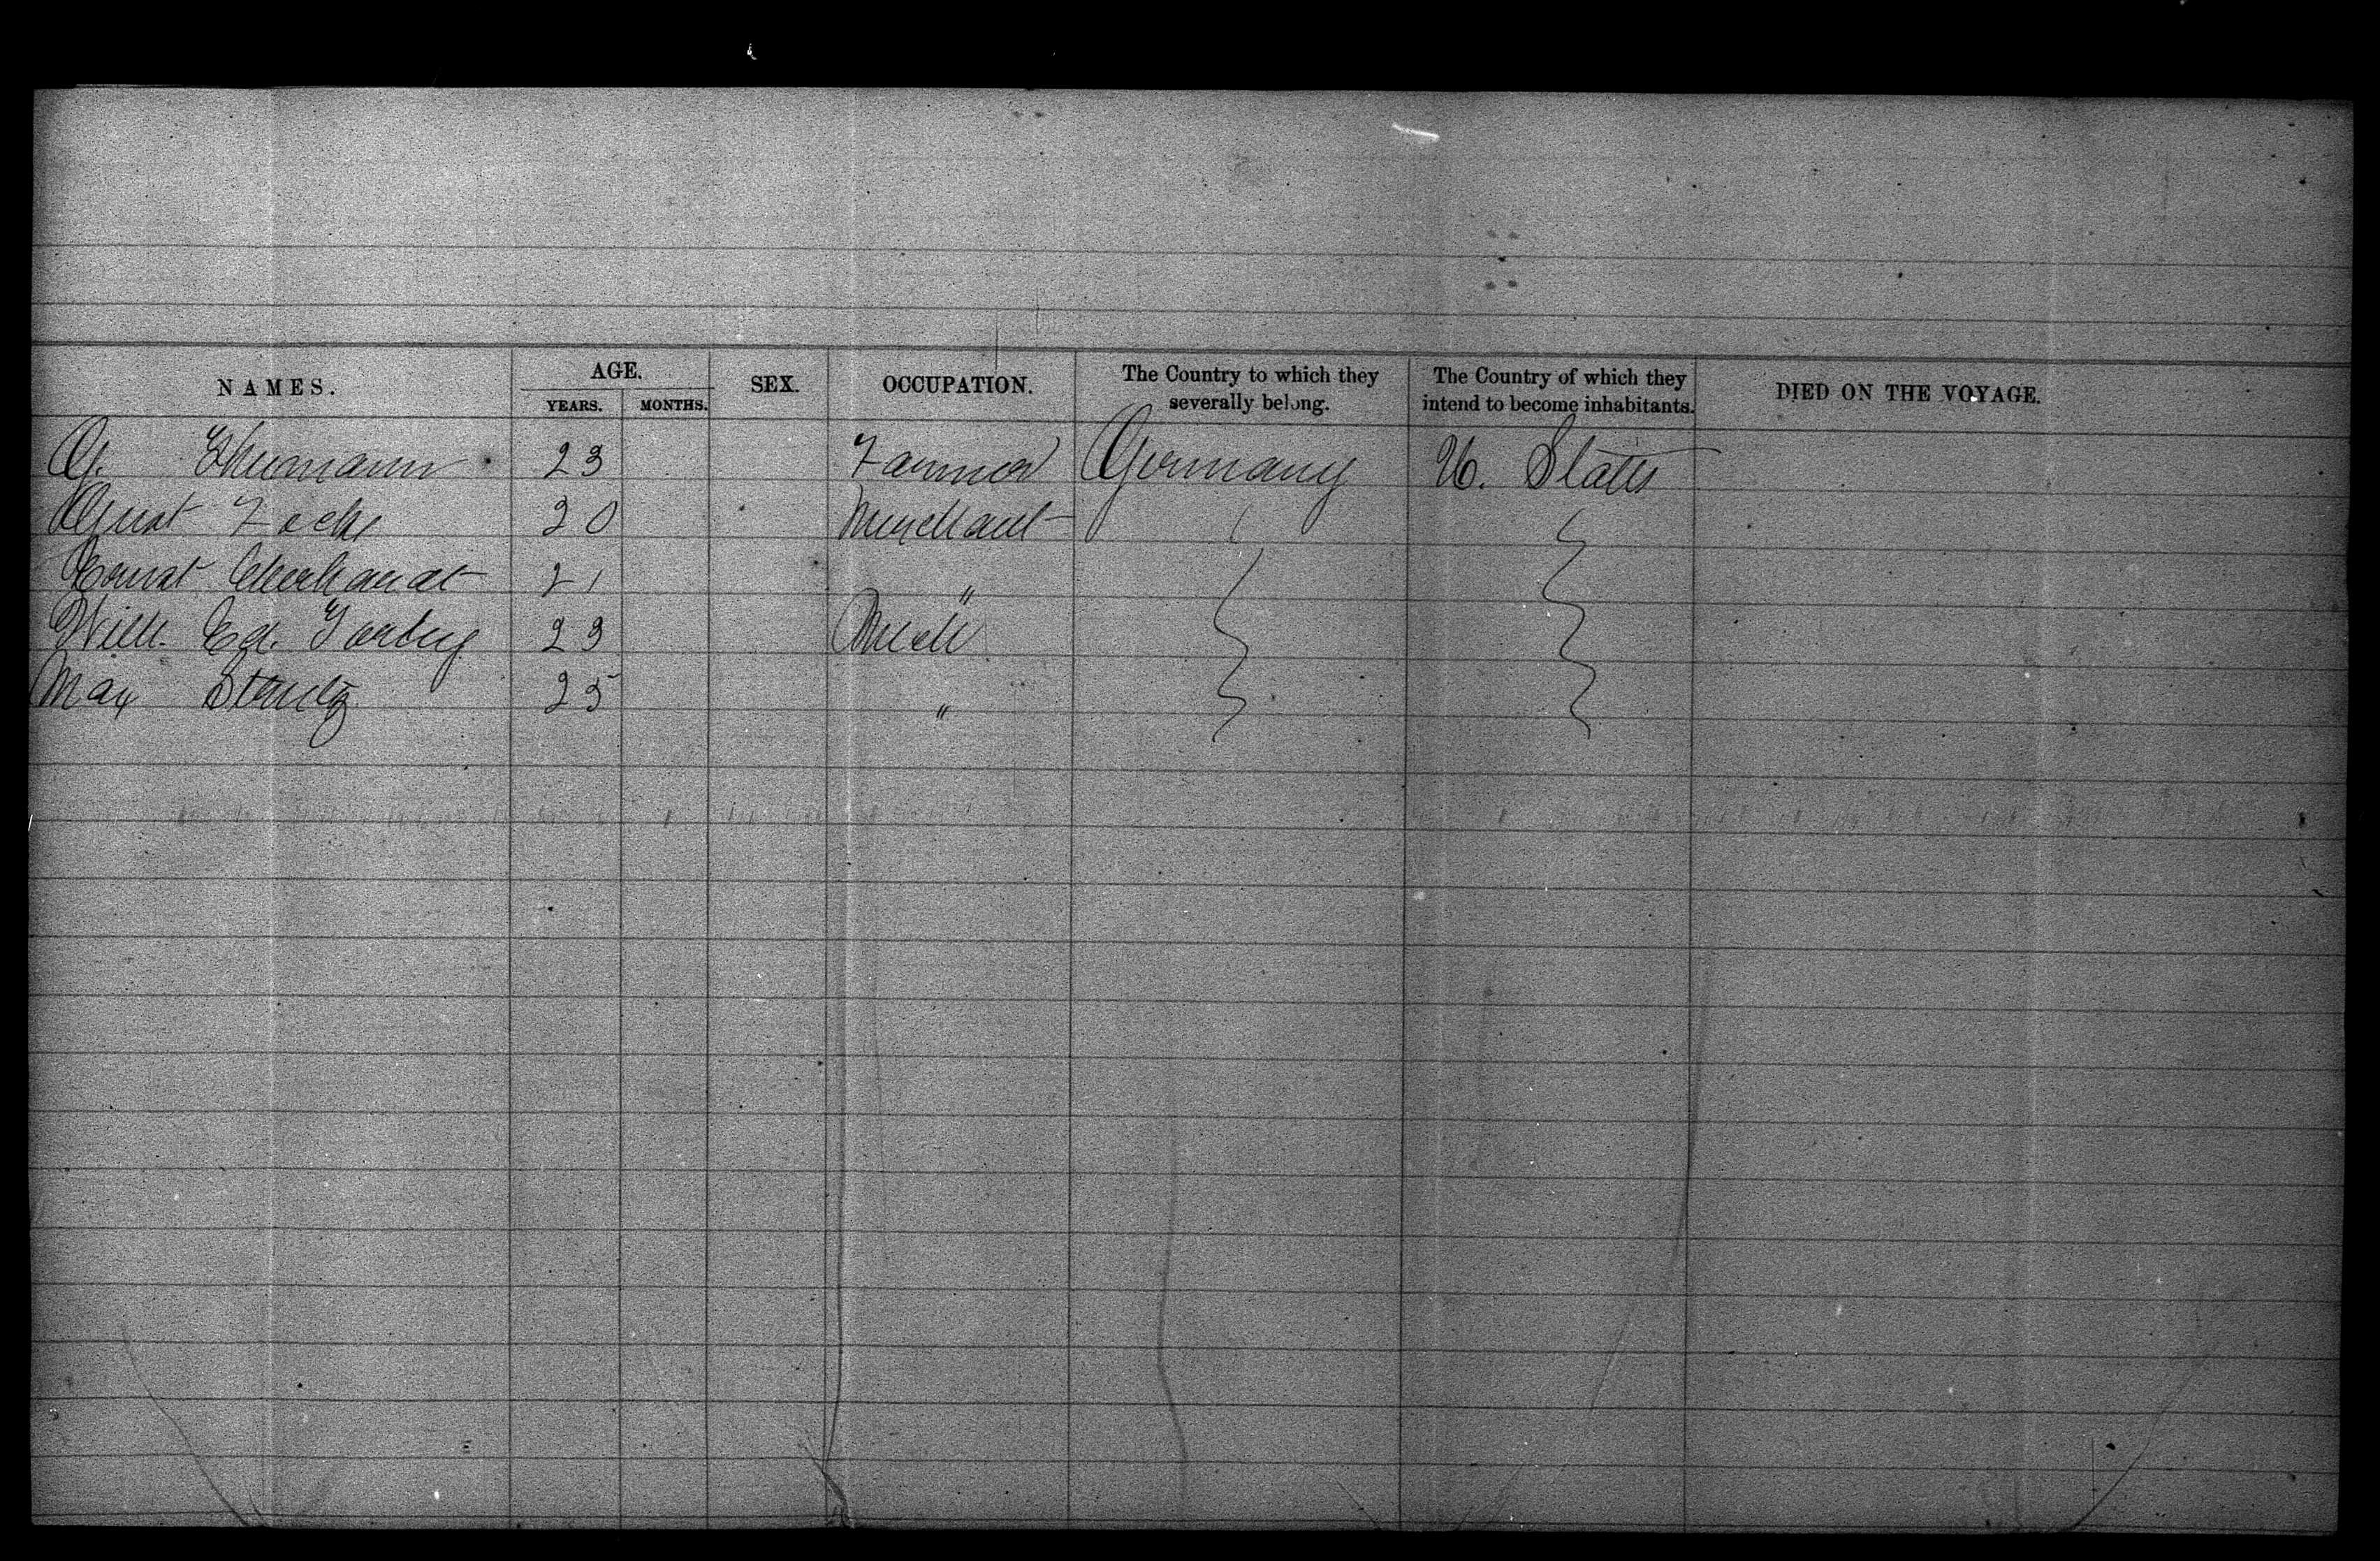 NAMES. AGE. SEX. OCCUPATION. The Country to which they severally belong. The Country of which they intend to become inhabitants. DIED ON THE VOYAGE.
YEARS. MONTHS.
G. 23 Farmer Germany U. States
Gust 20 Merchant
Ernst Eberhardt 21 "
Wilh. Ed. 23
Max 25 "